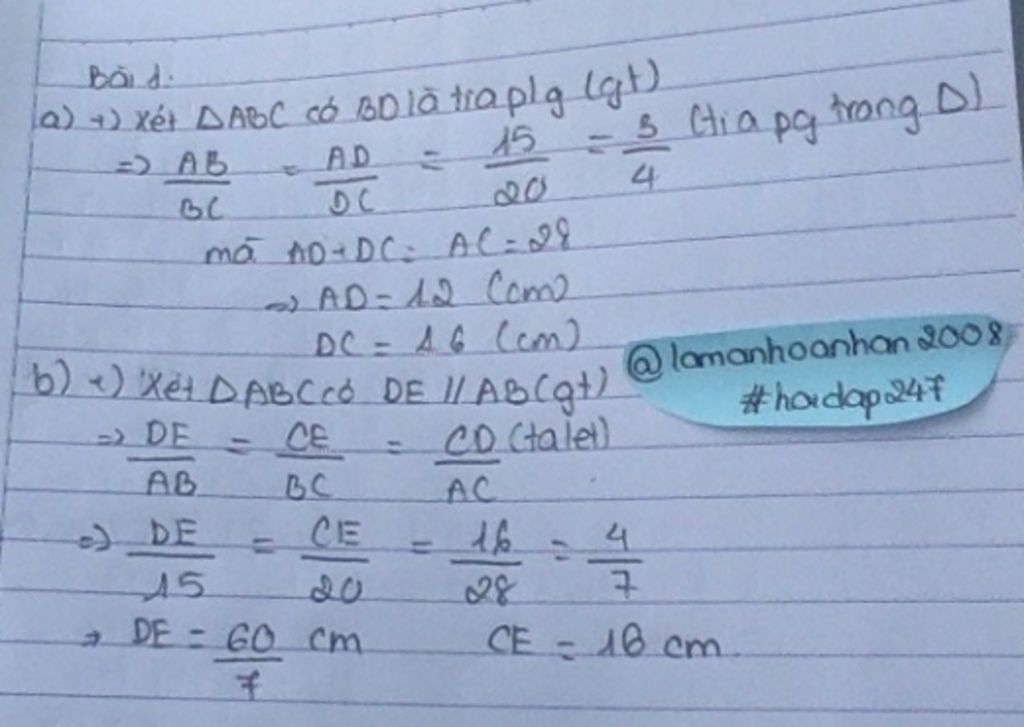 Bài 1:
a) +) Xét ΔABC có BD là tia p/g (gt)
=> AB/BC = AD/DC = 15/20 = 3/4 (tia pg trong Δ)
mà AD + DC = AC = 28
=> AD = 12 (cm)
DC = 16 (cm)
@lamanhoanhan2008
#hoidap247
b) +) Xét ΔABC có DE // AB (gt)
=> DE/AB = CE/BC = CD/AC (talet)
=> DE/15 = CE/20 = 16/28 = 4/7
=> DE = 60/7 cm CE = 16 cm